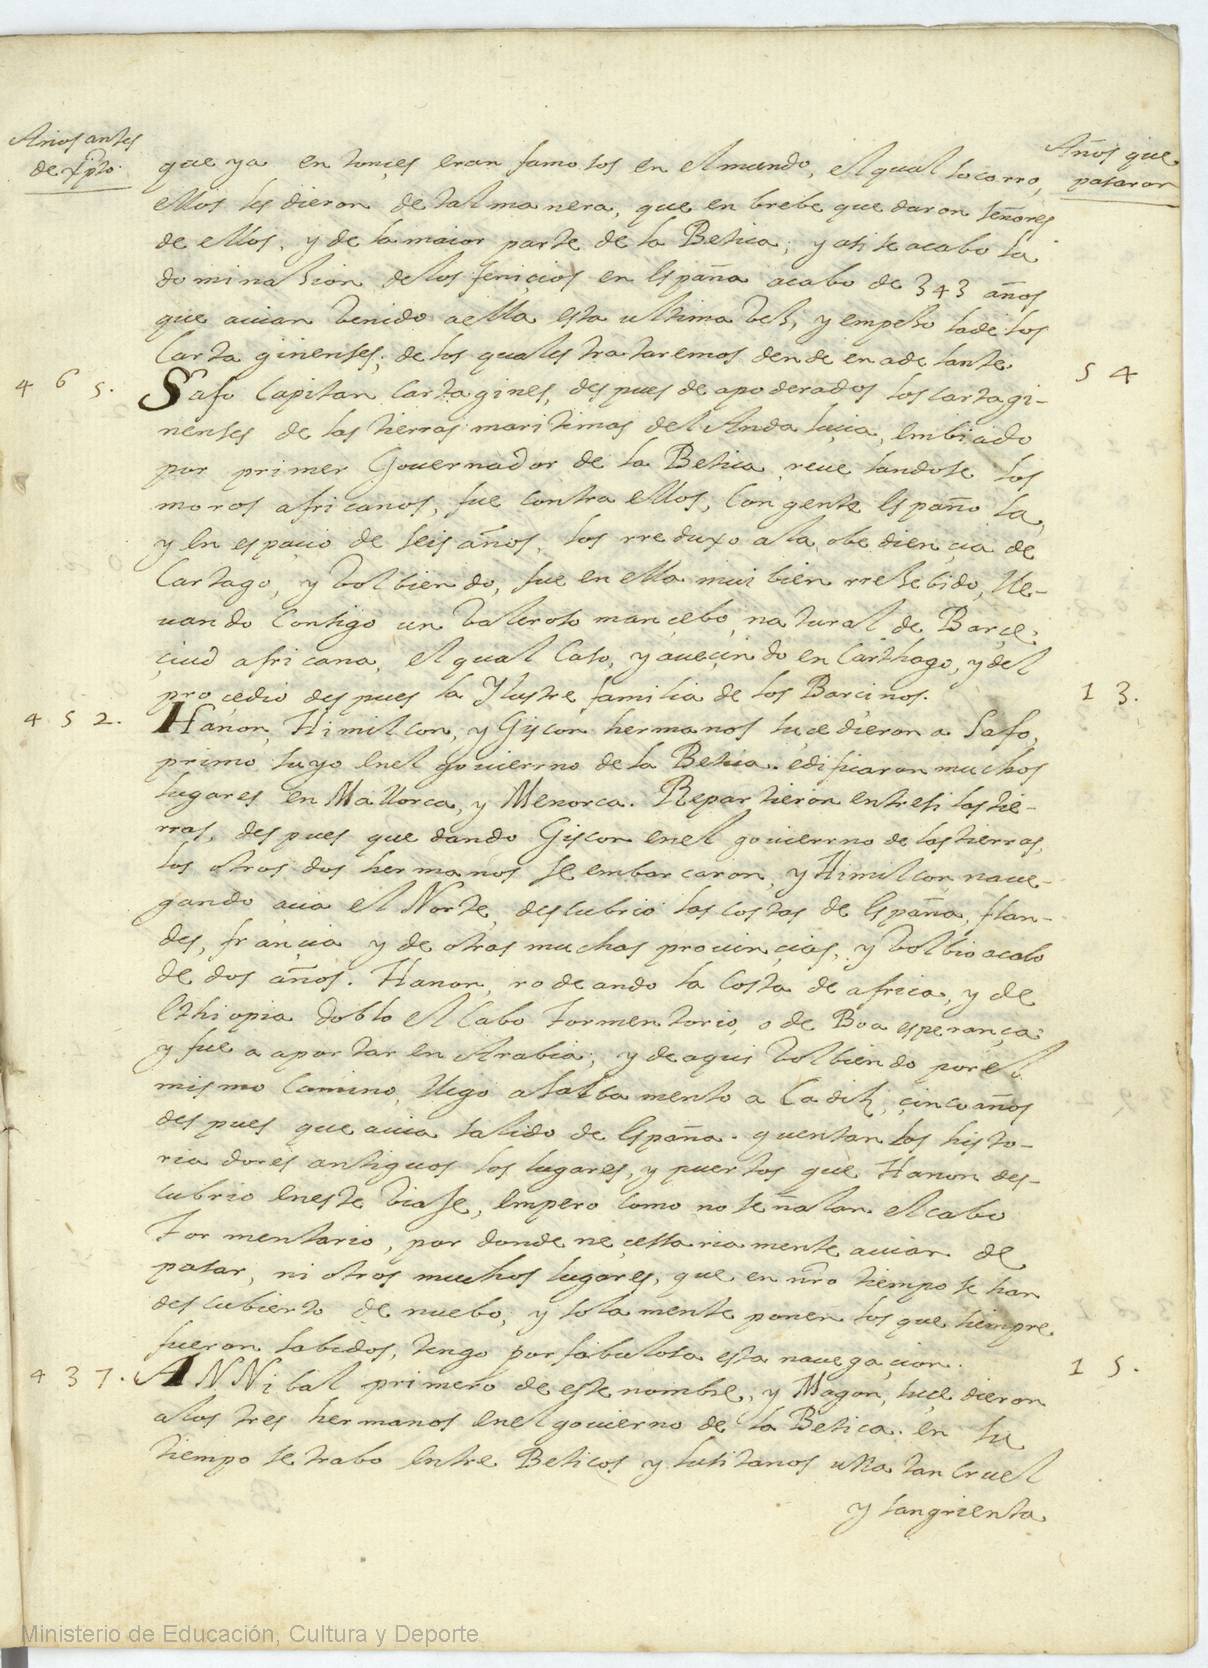 Años antes
de Xpto.
Años que
pasaron
que ya entonçes eran famosos en el mundo, el qual socorro,
ellos les dieron de tal manera, que en brebe quedaron señores
de ellos, y de la maior parte de la Betica; y asi se acabo la
dominasion de los feniçios en España acabo de 343 años
que auian venido a ella esta ultima vez, y empeso la de los
Cartaginenses, de los quales trataremos dende en adelante.
465.
54
Safo Capitan Cartagines, despues de apoderados los cartagi-
nenses de las tierras maritimas del Andaluçia, embiado
por primer Gouernador de la Betica, reuelandose los
moros africanos, fue contra ellos, con gente española,
y en espacio de seis años, los rreduxo a la obediencia de
Cartago, y volbiendo, fue en ella mui bien rresebido, lle-
uando consigo un valeroso mançebo, natural de Barçe,
çiud africana, el qual Caso, y aueçindo en Carthago, y del
proçedio despues la Ylustre familia de los Barcinos.
452.
13.
Hanon, Himilcon, y Giscon hermanos suçedieron a Safo,
primo suyo en el gouierrno de la Betica. edificaron muchos
lugares en Mallorca, y Menorca. Repartieron entre si las tie-
rras, despues quedando Giscon en el gouierrno de las tierras,
los otros dos hermanos se embarcaron, y Himilcon naue-
gando acia el Norte, descubrio las costas de España, flan-
des, françia y de otras muchas prouinçias, y volbio acabo
de dos años. Hanon, rodeando la Costa de africa, y de
Ethiopia doblo el Cabo Tormentorio, o de Boa esperança;
y fue a aportar en Arabia, y de aqui volbiendo por el
mismo Camino, llego a salbamento a Cadiz, çinco años
despues que auia salido de España. quentan los histo-
riadores antiguos los lugares, y puertos que Hanon des-
cubrio en este viaje, empero como no señalan el cabo
Tormentario, por donde neçessariamente auian de
pasar, ni otros muchos lugares, que en nro tiempo se han
descubierto de nuebo, y solamente ponen los que siempre
fueron sabidos, tengo por fabulosa esta nauegaçion.
437.
15.
ANNibal primero de este nombre, y Magon, suçedieron
a los tres hermanos en el gouierno de la Betica. en su
tiempo se trabo entre Beticos y lusitanos una tan cruel
y sangrienta
Ministerio de Educación, Cultura y Deporte